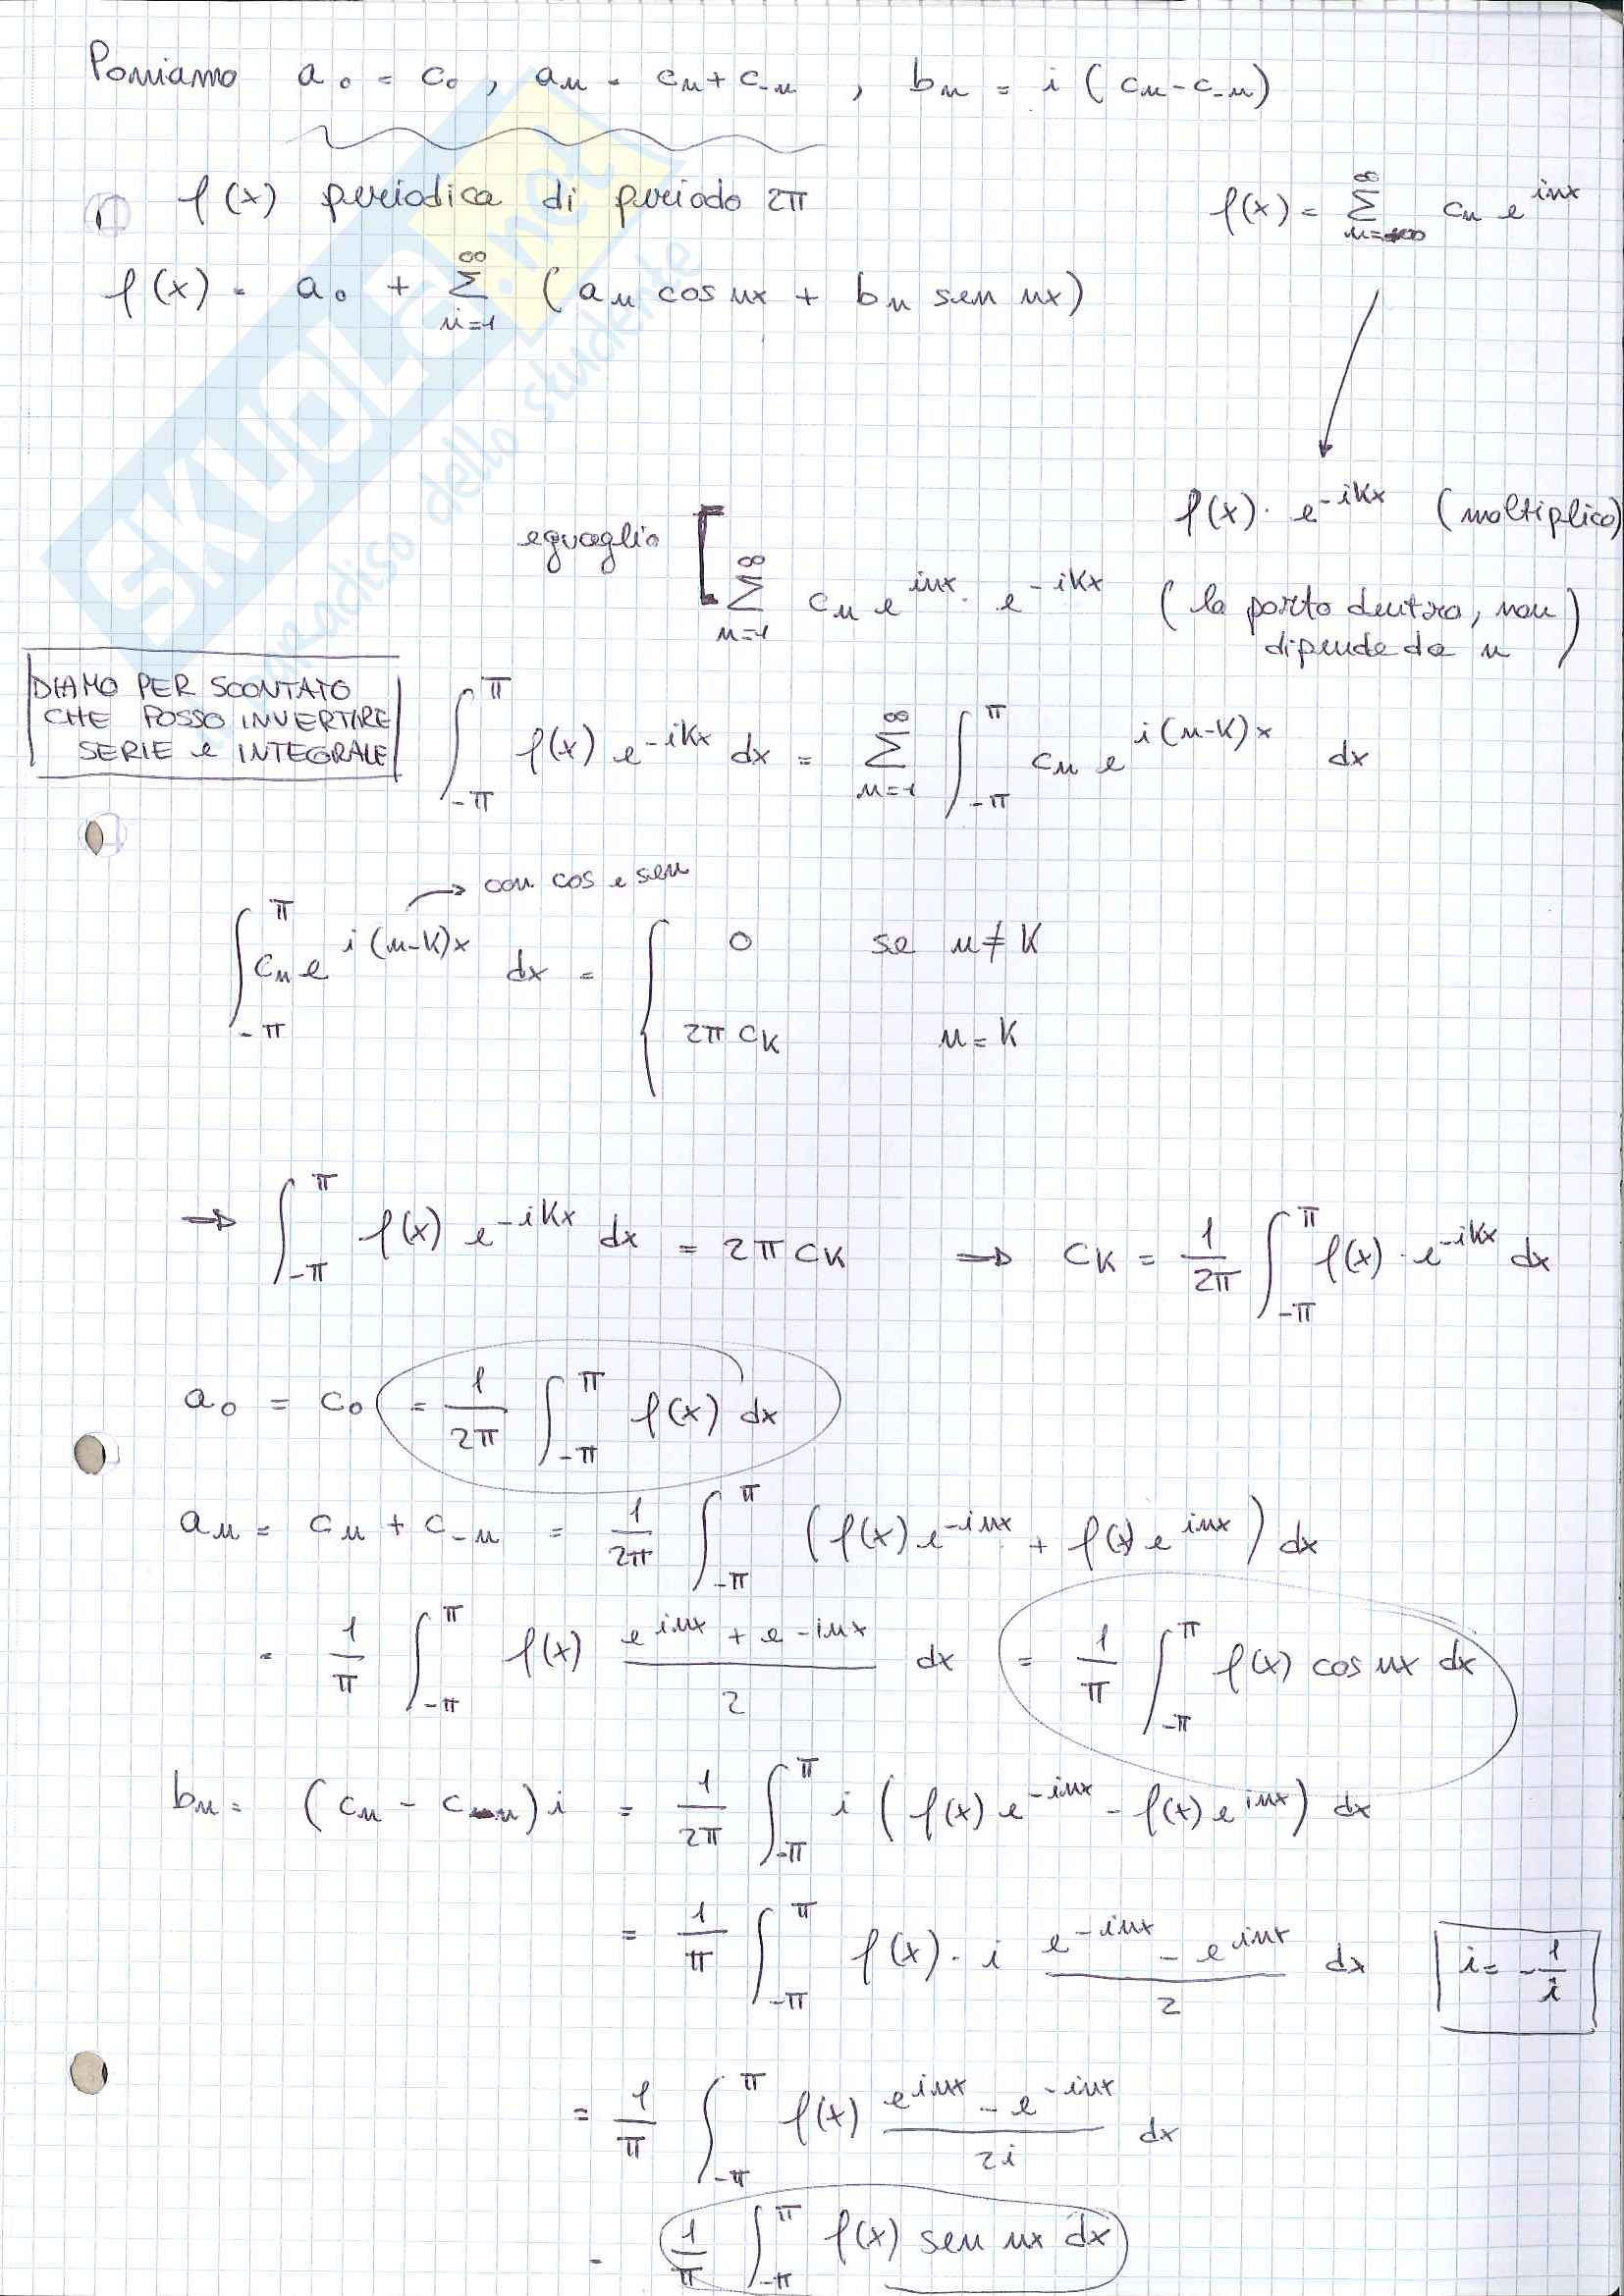 Poniamo a₀ = c₀ , aₙ = cₙ + c₋ₙ , bₙ = i ( cₙ - c₋ₙ )
f(x) periodica di periodo 2π
f(x) = ∑_{n=-∞}^{∞} cₙ e^{inx}
f(x) = a₀ + ∑_{n=1}^{∞} ( aₙ cos nx + bₙ sen nx )
f(x) · e^{-iKx} (moltiplico)
eguaglio [ ∑_{n=1}^{∞} cₙ e^{inx} · e^{-iKx} ( la porto dentro, non
dipende da n )
DIAMO PER SCONTATO
CHE POSSO INVERTIRE
SERIE e INTEGRALE
∫_{-π}^{π} f(x) e^{-iKx} dx = ∑_{n=1}^{∞} ∫_{-π}^{π} cₙ e^{i(n-K)x} dx
→ con cos e sen
∫_{-π}^{π} cₙ e^{i(n-K)x} dx = { 0 se n ≠ K
2π c_K n = K
⇒ ∫_{-π}^{π} f(x) e^{-iKx} dx = 2π c_K ⇒ c_K = 1/2π ∫_{-π}^{π} f(x) · e^{-iKx} dx
a₀ = c₀ = 1/2π ∫_{-π}^{π} f(x) dx
aₙ = cₙ + c₋ₙ = 1/2π ∫_{-π}^{π} ( f(x) e^{-inx} + f(x) e^{inx} ) dx
= 1/π ∫_{-π}^{π} f(x) (e^{inx} + e^{-inx})/2 dx = 1/π ∫_{-π}^{π} f(x) cos nx dx
bₙ = ( cₙ - c₋ₙ ) i = 1/2π ∫_{-π}^{π} i ( f(x) e^{-inx} - f(x) e^{inx} ) dx
= 1/π ∫_{-π}^{π} f(x) · i (e^{-inx} - e^{inx})/2 dx i = - 1/i
= 1/π ∫_{-π}^{π} f(x) (e^{inx} - e^{-inx})/2i dx
= 1/π ∫_{-π}^{π} f(x) sen nx dx
SKUOLA.net
paradiso dello studente